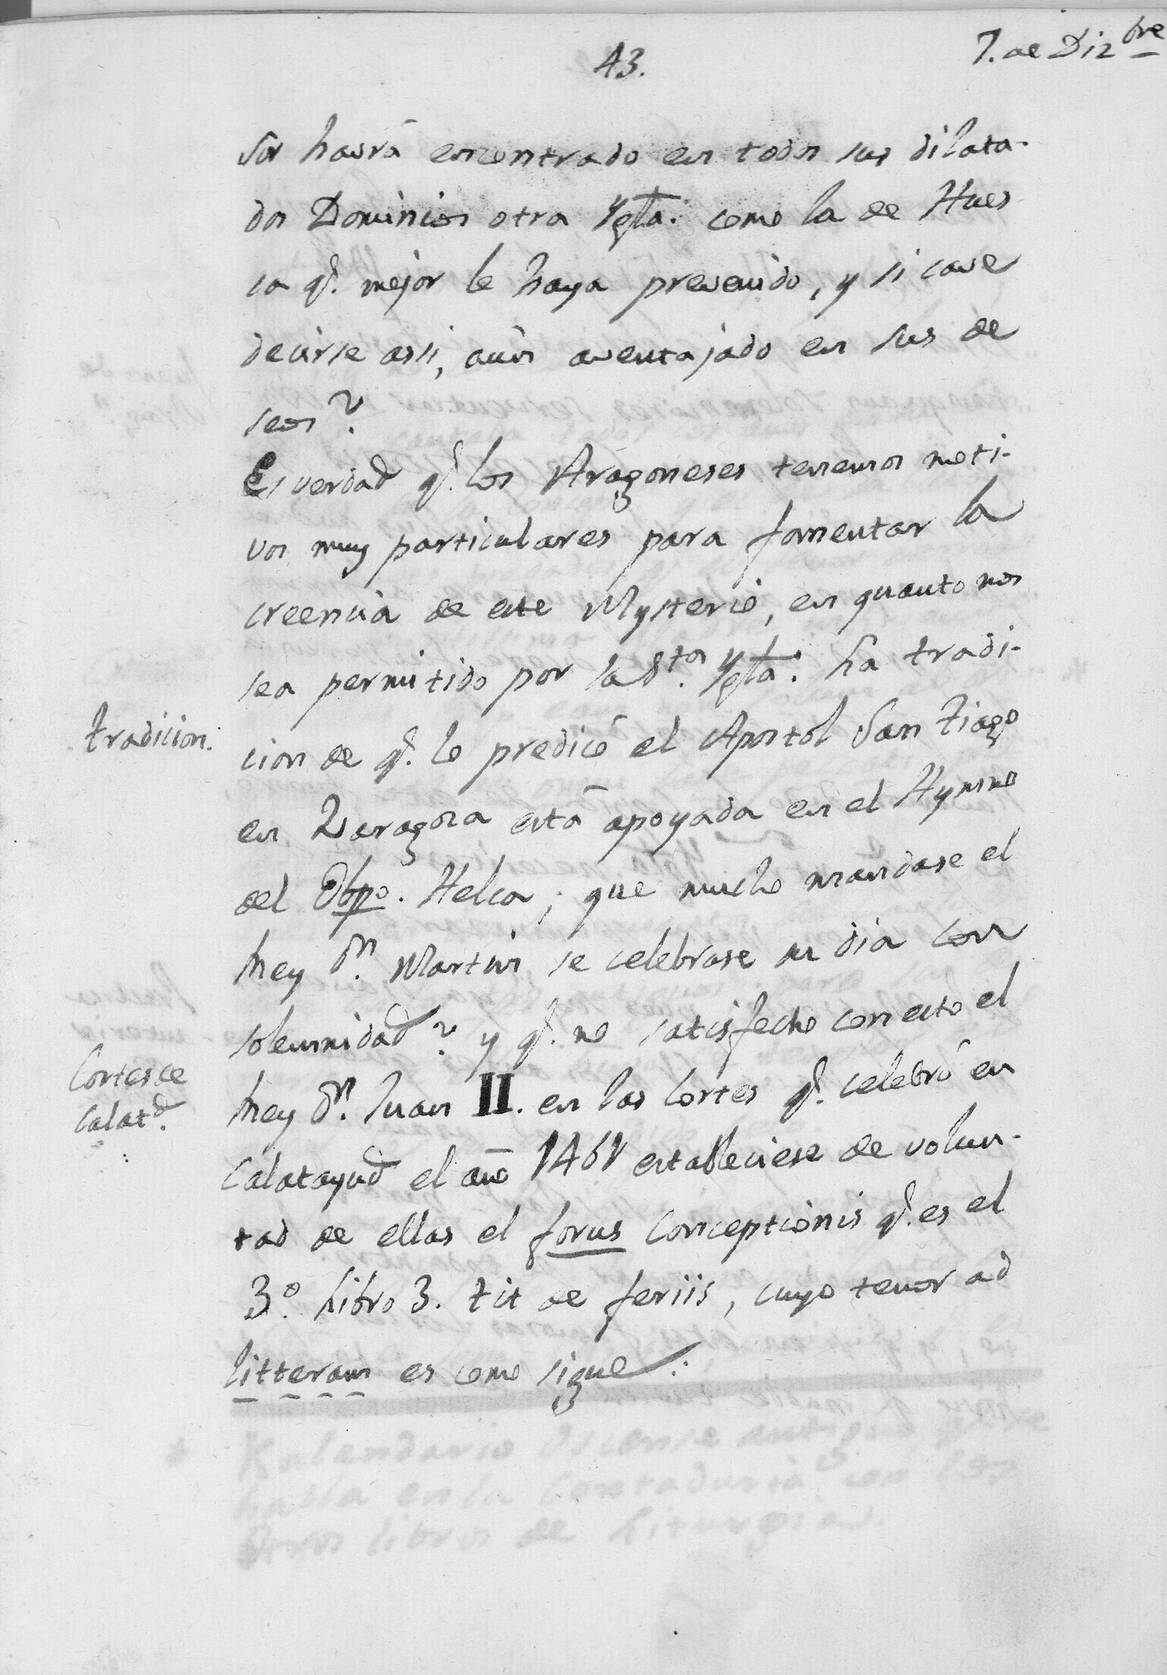 43.
7. de Dizbre
sor havrá encontrado en todos sus dilata-
dos Dominios otra Ygla. como la de Hues
ca q. mejor le haya prevenido, y si cave
decirse assi, aún aventajado en sus de
seos?
Es verdad q. los Aragoneses tenemos moti-
vos muy particulares para fomentar la
creencia de este Mysterio, en quanto nos
sea permitido por la Sta. Ygla. la tradi-
tradicion.
cion de q. lo predicó el Apostol San Tiago
en Zaragoza está apoyada en el Hymno
del Obpo. Helca; que mucho mandase el
Rey Dn. Martin se celebrase su dia con
solemnidad? y q. no satisfecho con esto el
Cortes de
Calatd.
Rey Dn. Juan II. en las Cortes q. celebró en
Calatayud el año 1461 estableciese de volun-
tad de ellas el forus Conceptionis q. es el
3º. Libro 3. tit de feriis, cuyo tenor ad
litteram es como sigue:
* Kalendario Oscense antiguo
halla en la Contaduria con los
otros libros de Liturgia.